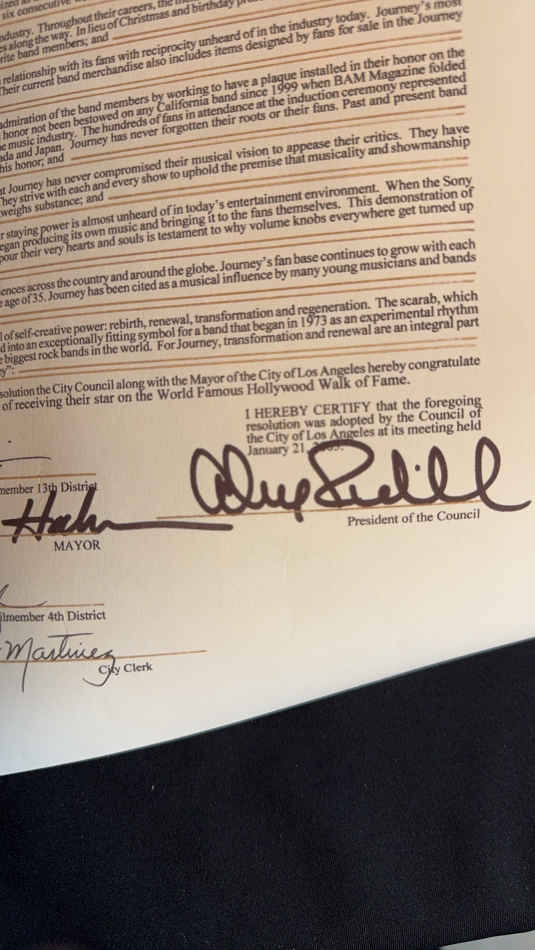 six consecutive
industry. Throughout their careers, the
es along the way. In lieu of Christmas and birthday
rite band members; and
relationship with its fans with reciprocity unheard of in the industry today. Journey's most
Their current band merchandise also includes items designed by fans for sale in the Journey
admiration of the band members by working to have a plaque installed in their honor on the
honor not been bestowed on any California band since 1999 when BAM Magazine folded
e music industry. The hundreds of fans in attendance at the induction ceremony represented
ada and Japan. Journey has never forgotten their roots or their fans. Past and present band
his honor; and
at Journey has never compromised their musical vision to appease their critics. They have
They strive with each and every show to uphold the premise that musicality and showmanship
weighs substance; and
r staying power is almost unheard of in today's entertainment environment. When the Sony
egan producing its own music and bringing it to the fans themselves. This demonstration of
pour their very hearts and souls is testament to why volume knobs everywhere get turned up
iences across the country and around the globe. Journey's fan base continues to grow with each
e age of 35. Journey has been cited as a musical influence by many young musicians and bands
l of self-creative power: rebirth, renewal, transformation and regeneration. The scarab, which
d into an exceptionally fitting symbol for a band that began in 1973 as an experimental rhythm
e biggest rock bands in the world. For Journey, transformation and renewal are an integral part
y":
solution the City Council along with the Mayor of the City of Los Angeles hereby congratulate
of receiving their star on the World Famous Hollywood Walk of Fame.
I HEREBY CERTIFY that the foregoing
resolution was adopted by the Council of
the City of Los Angeles at its meeting held
January 21, 2005.
member 13th District
Hahn
MAYOR
President of the Council
ilmember 4th District
Martinez
City Clerk